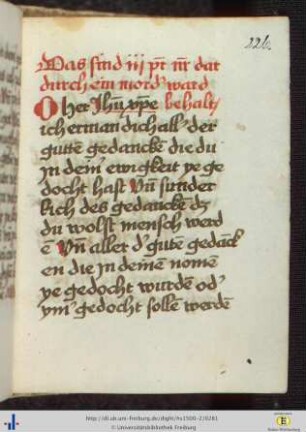 226.
Das sind iij pr̄ nr̄ dar
durch ein mord ward
O her Jhū xp̄e behalt
ich erman dich all der
gutten gedancken die du
jn dein ewigkeit ye ge
docht hast Vn̄ sunder
lich des gedancken dz
du wolst mensch werd
ē Vn̄ aller d' gute gedāck
en die jn deinem nomē
ye gedocht wurdē od'
ym̄ gedocht sollē werdē
http://dl.ub.uni-freiburg.de/diglit/hs1500-22/0261
© Universitätsbibliothek Freiburg